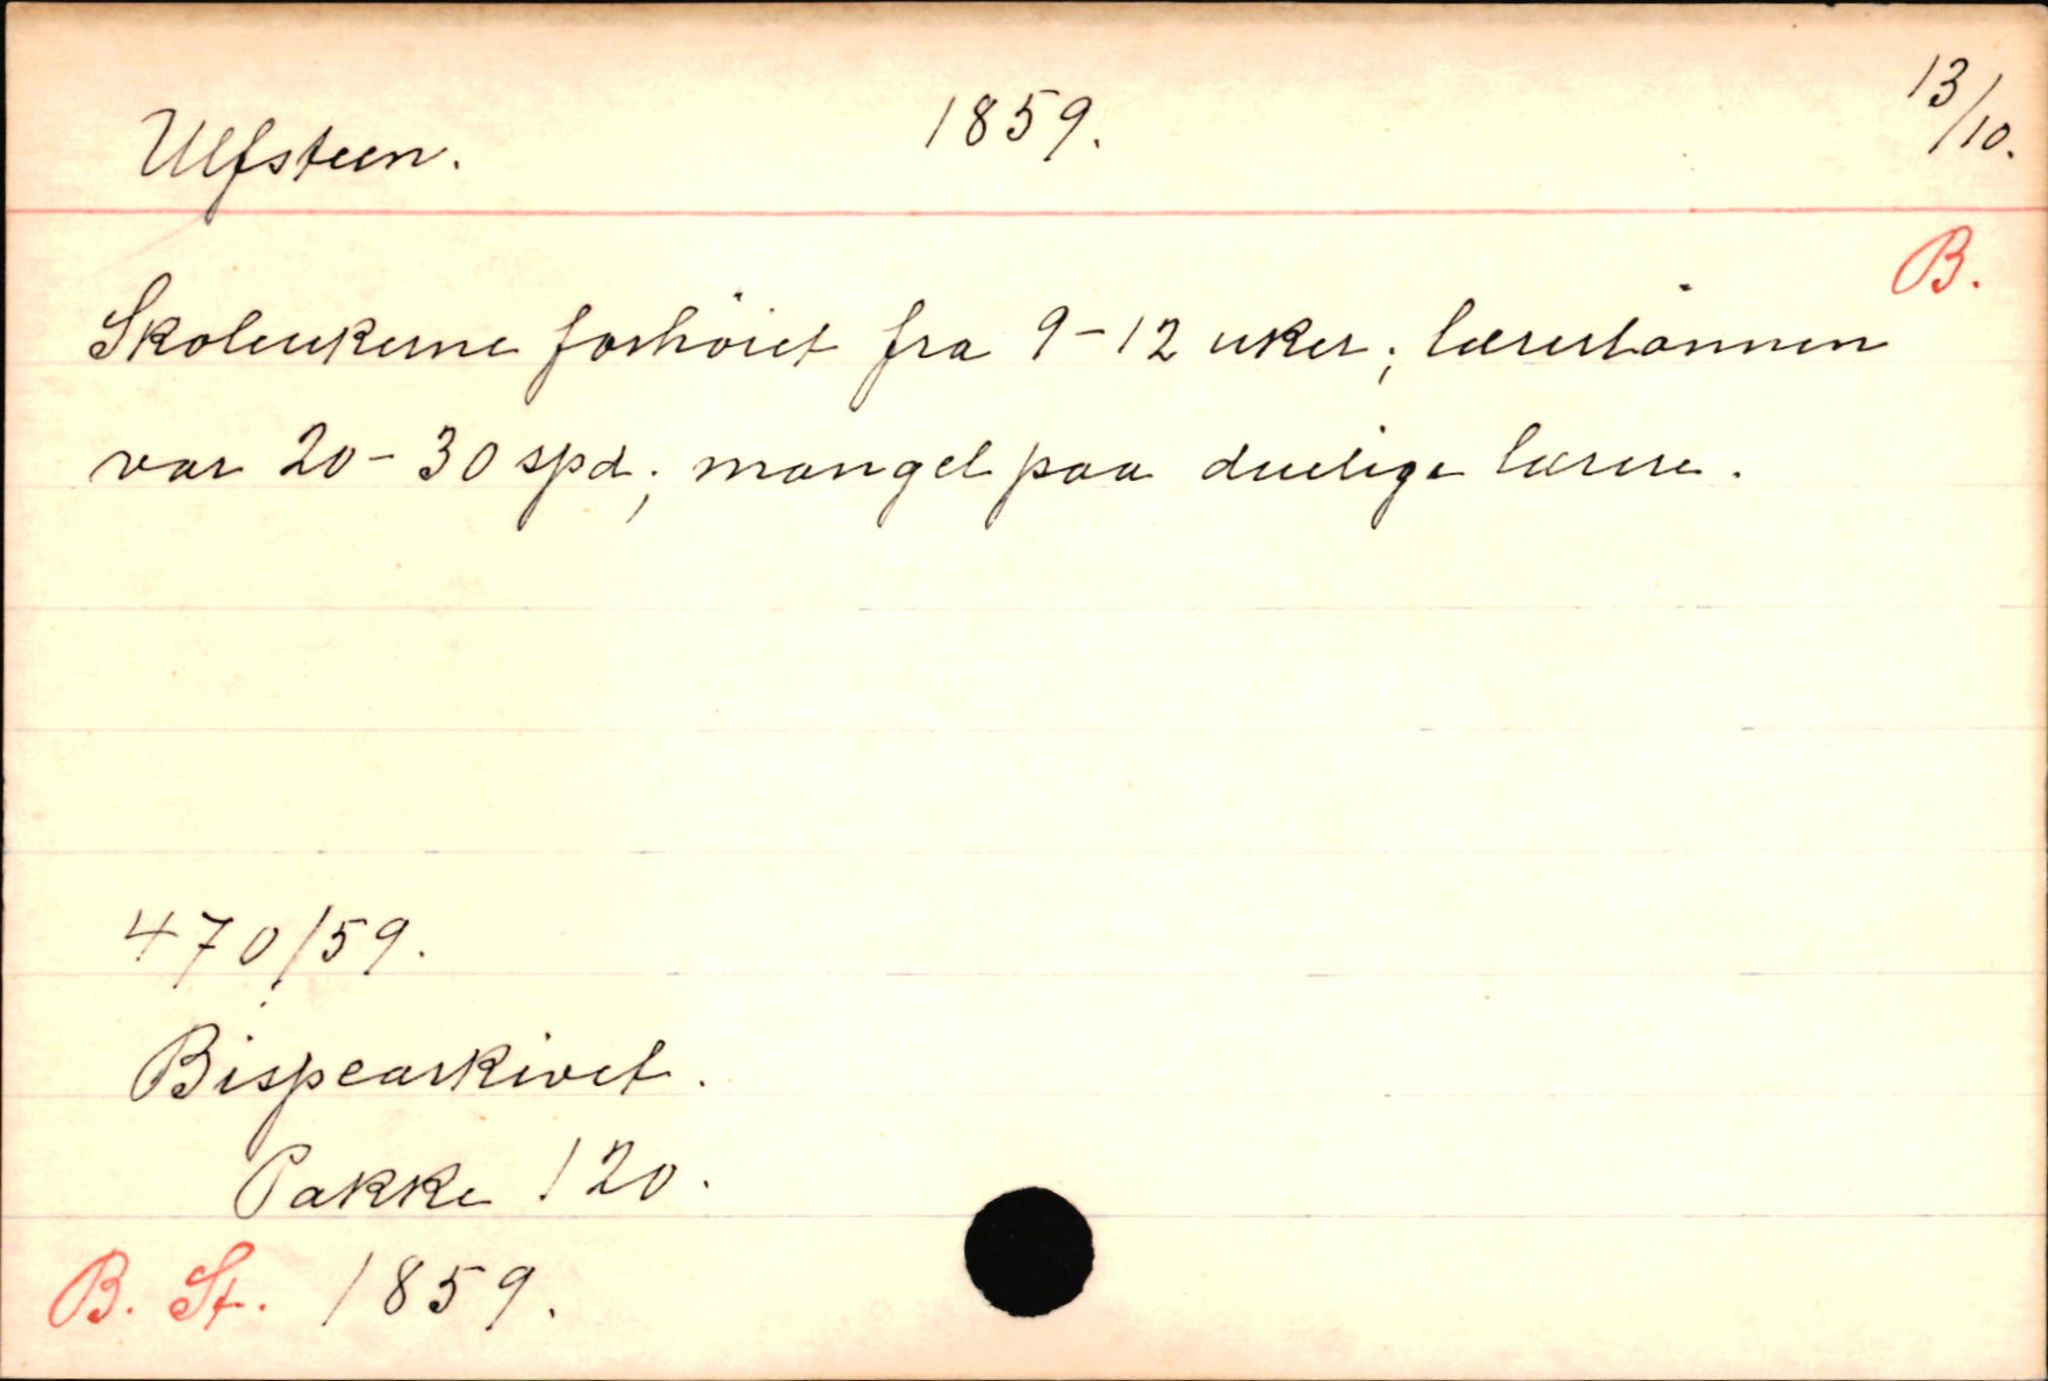 Ulfsteen. 1859. 13/10.
B.
Skoleukerne forhöiet fra 9-12 uker; lærerlönnen
var 20-30 spd; mangel paa duelige lærere.
470/59.
Bispearkivet.
Pakke 120.
B. St. 1859.